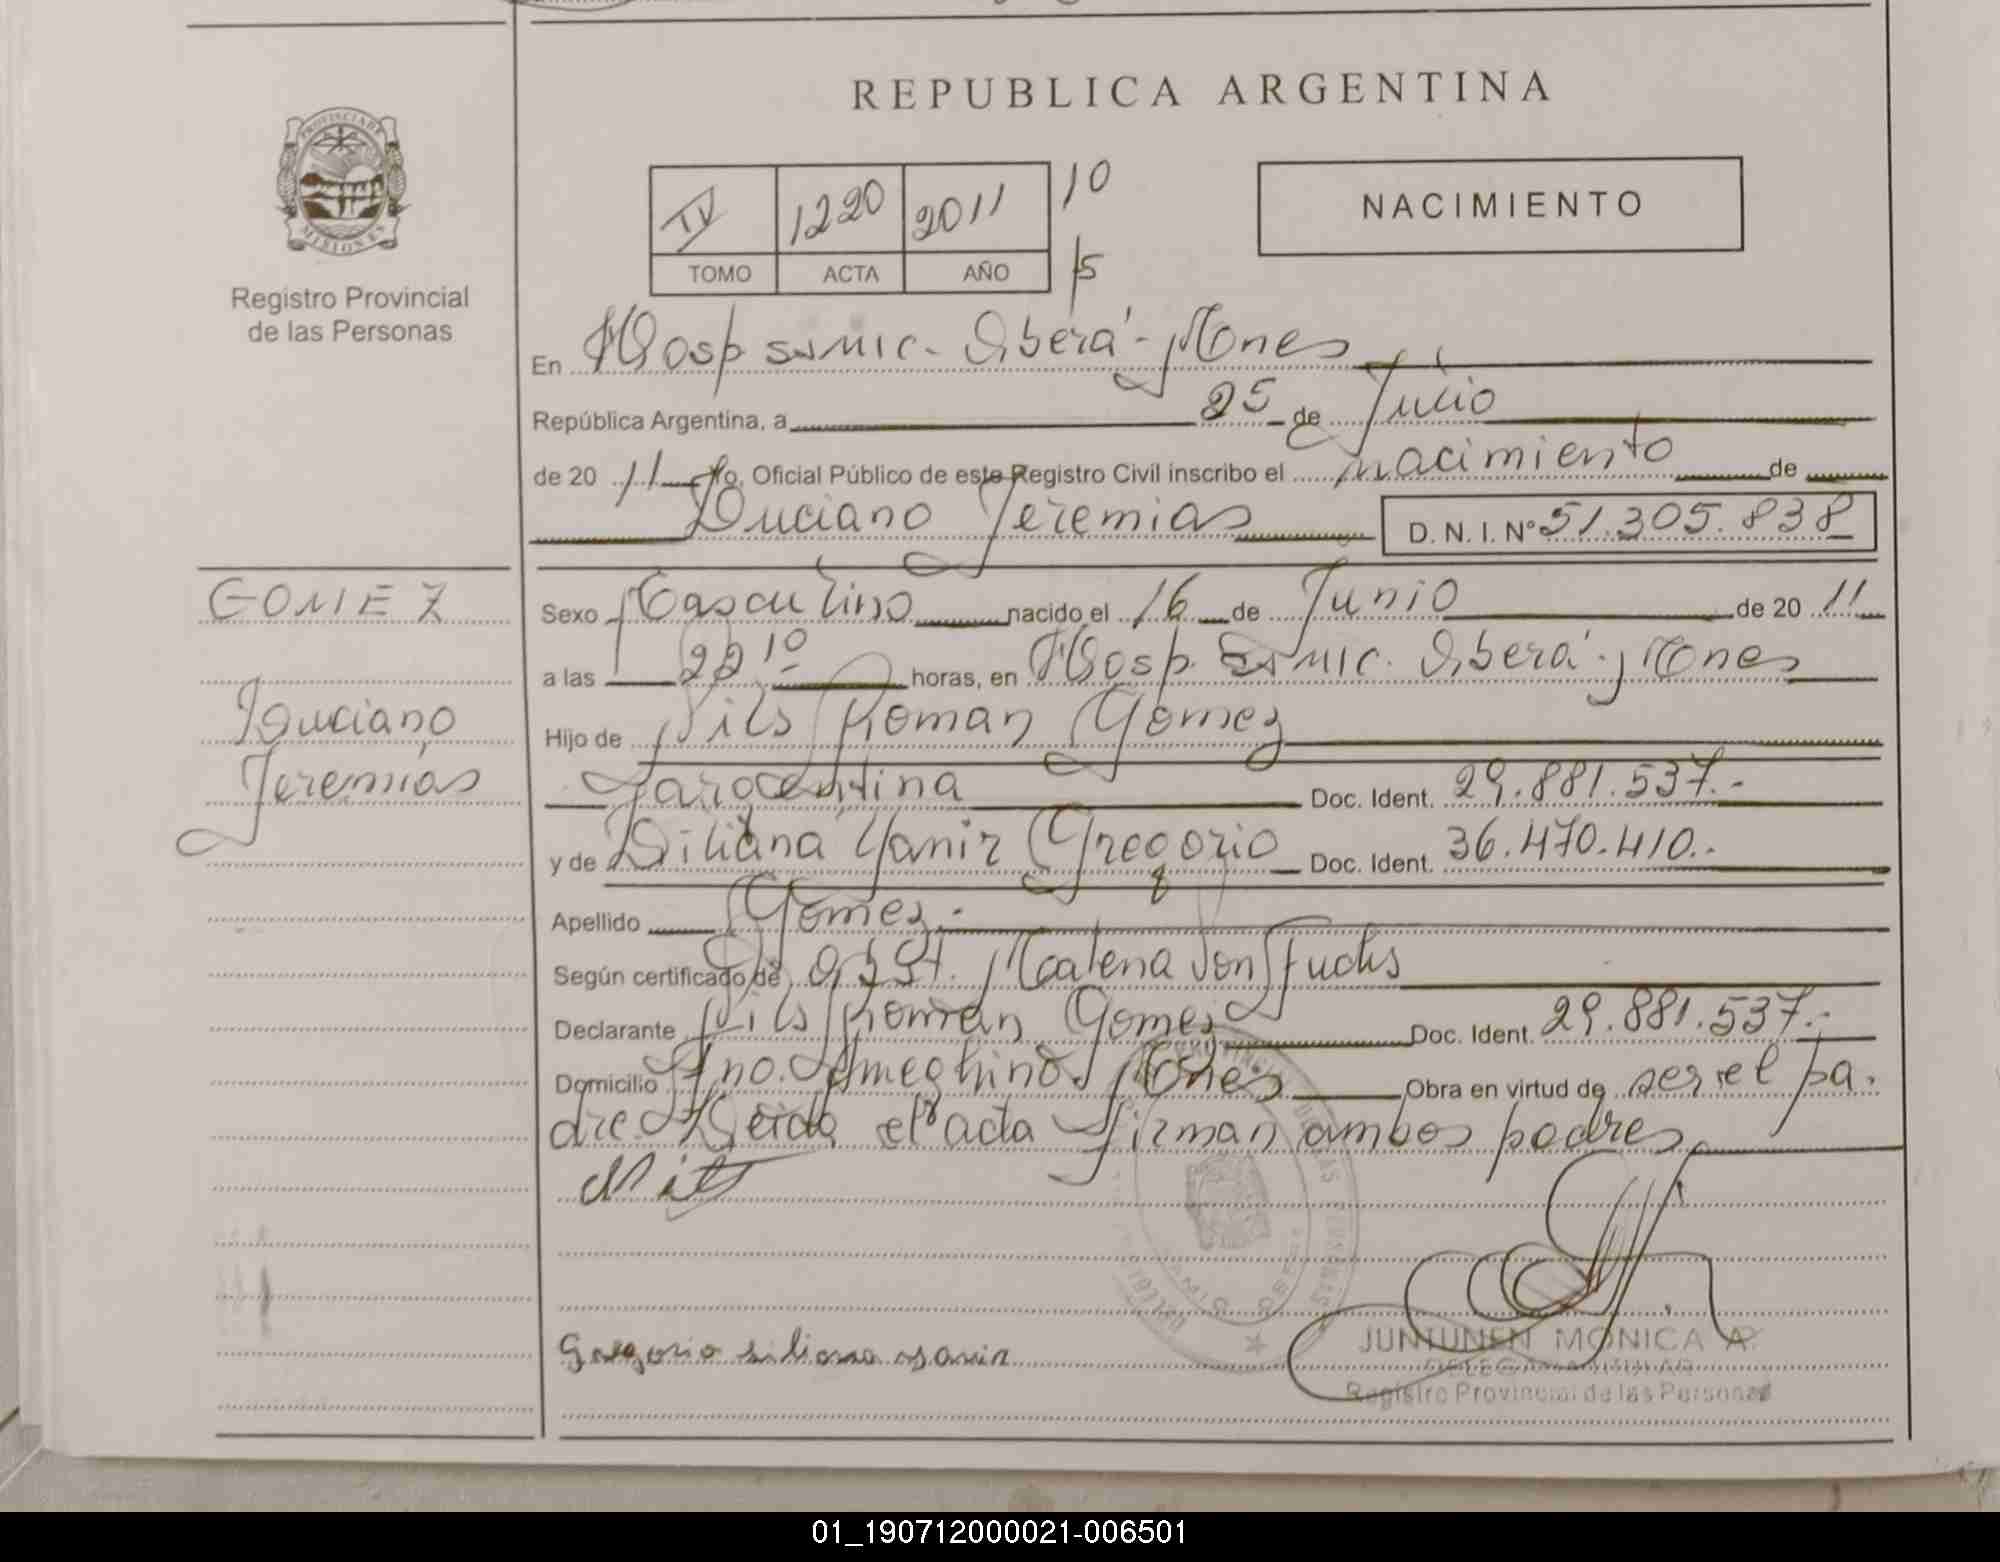 REPUBLICA ARGENTINA
PROVINCIA DE
MISIONES
Registro Provincial
de las Personas
IV 1220 2011 10
TOMO ACTA AÑO 15
NACIMIENTO
En Hosp samic. Oberá - Mones
República Argentina, a 25 de Julio
de 2011 Yo, Oficial Público de este Registro Civil inscribo el nacimiento de
Luciano Jeremias D. N. I. Nº 51.305.838
GOMEZ
Luciano
Jeremias
Sexo Masculino nacido el 16 de Junio de 2011
a las 22 10 horas, en Hosp. Samic. Oberá - Mones
Hijo de Nils Roman Gomez
argentina Doc. Ident. 29.881.537.-
y de Liliana Yanir Gregorio Doc. Ident. 36.470.410.-
Apellido Gomez.-
Según certificado de Obst. Malena Von Fuchs
Declarante Nils Roman Gomez Doc. Ident. 29.881.537.-
Domicilio Fno. Ameghino. Mones Obra en virtud de ser el pa-
dre. Leida el acta firman ambos padres.
Gregorio liliana yanir
JUNTUNEN MONICA A.
DELEGADA TITULAR
Registro Provincial de las Personas
01_190712000021-006501